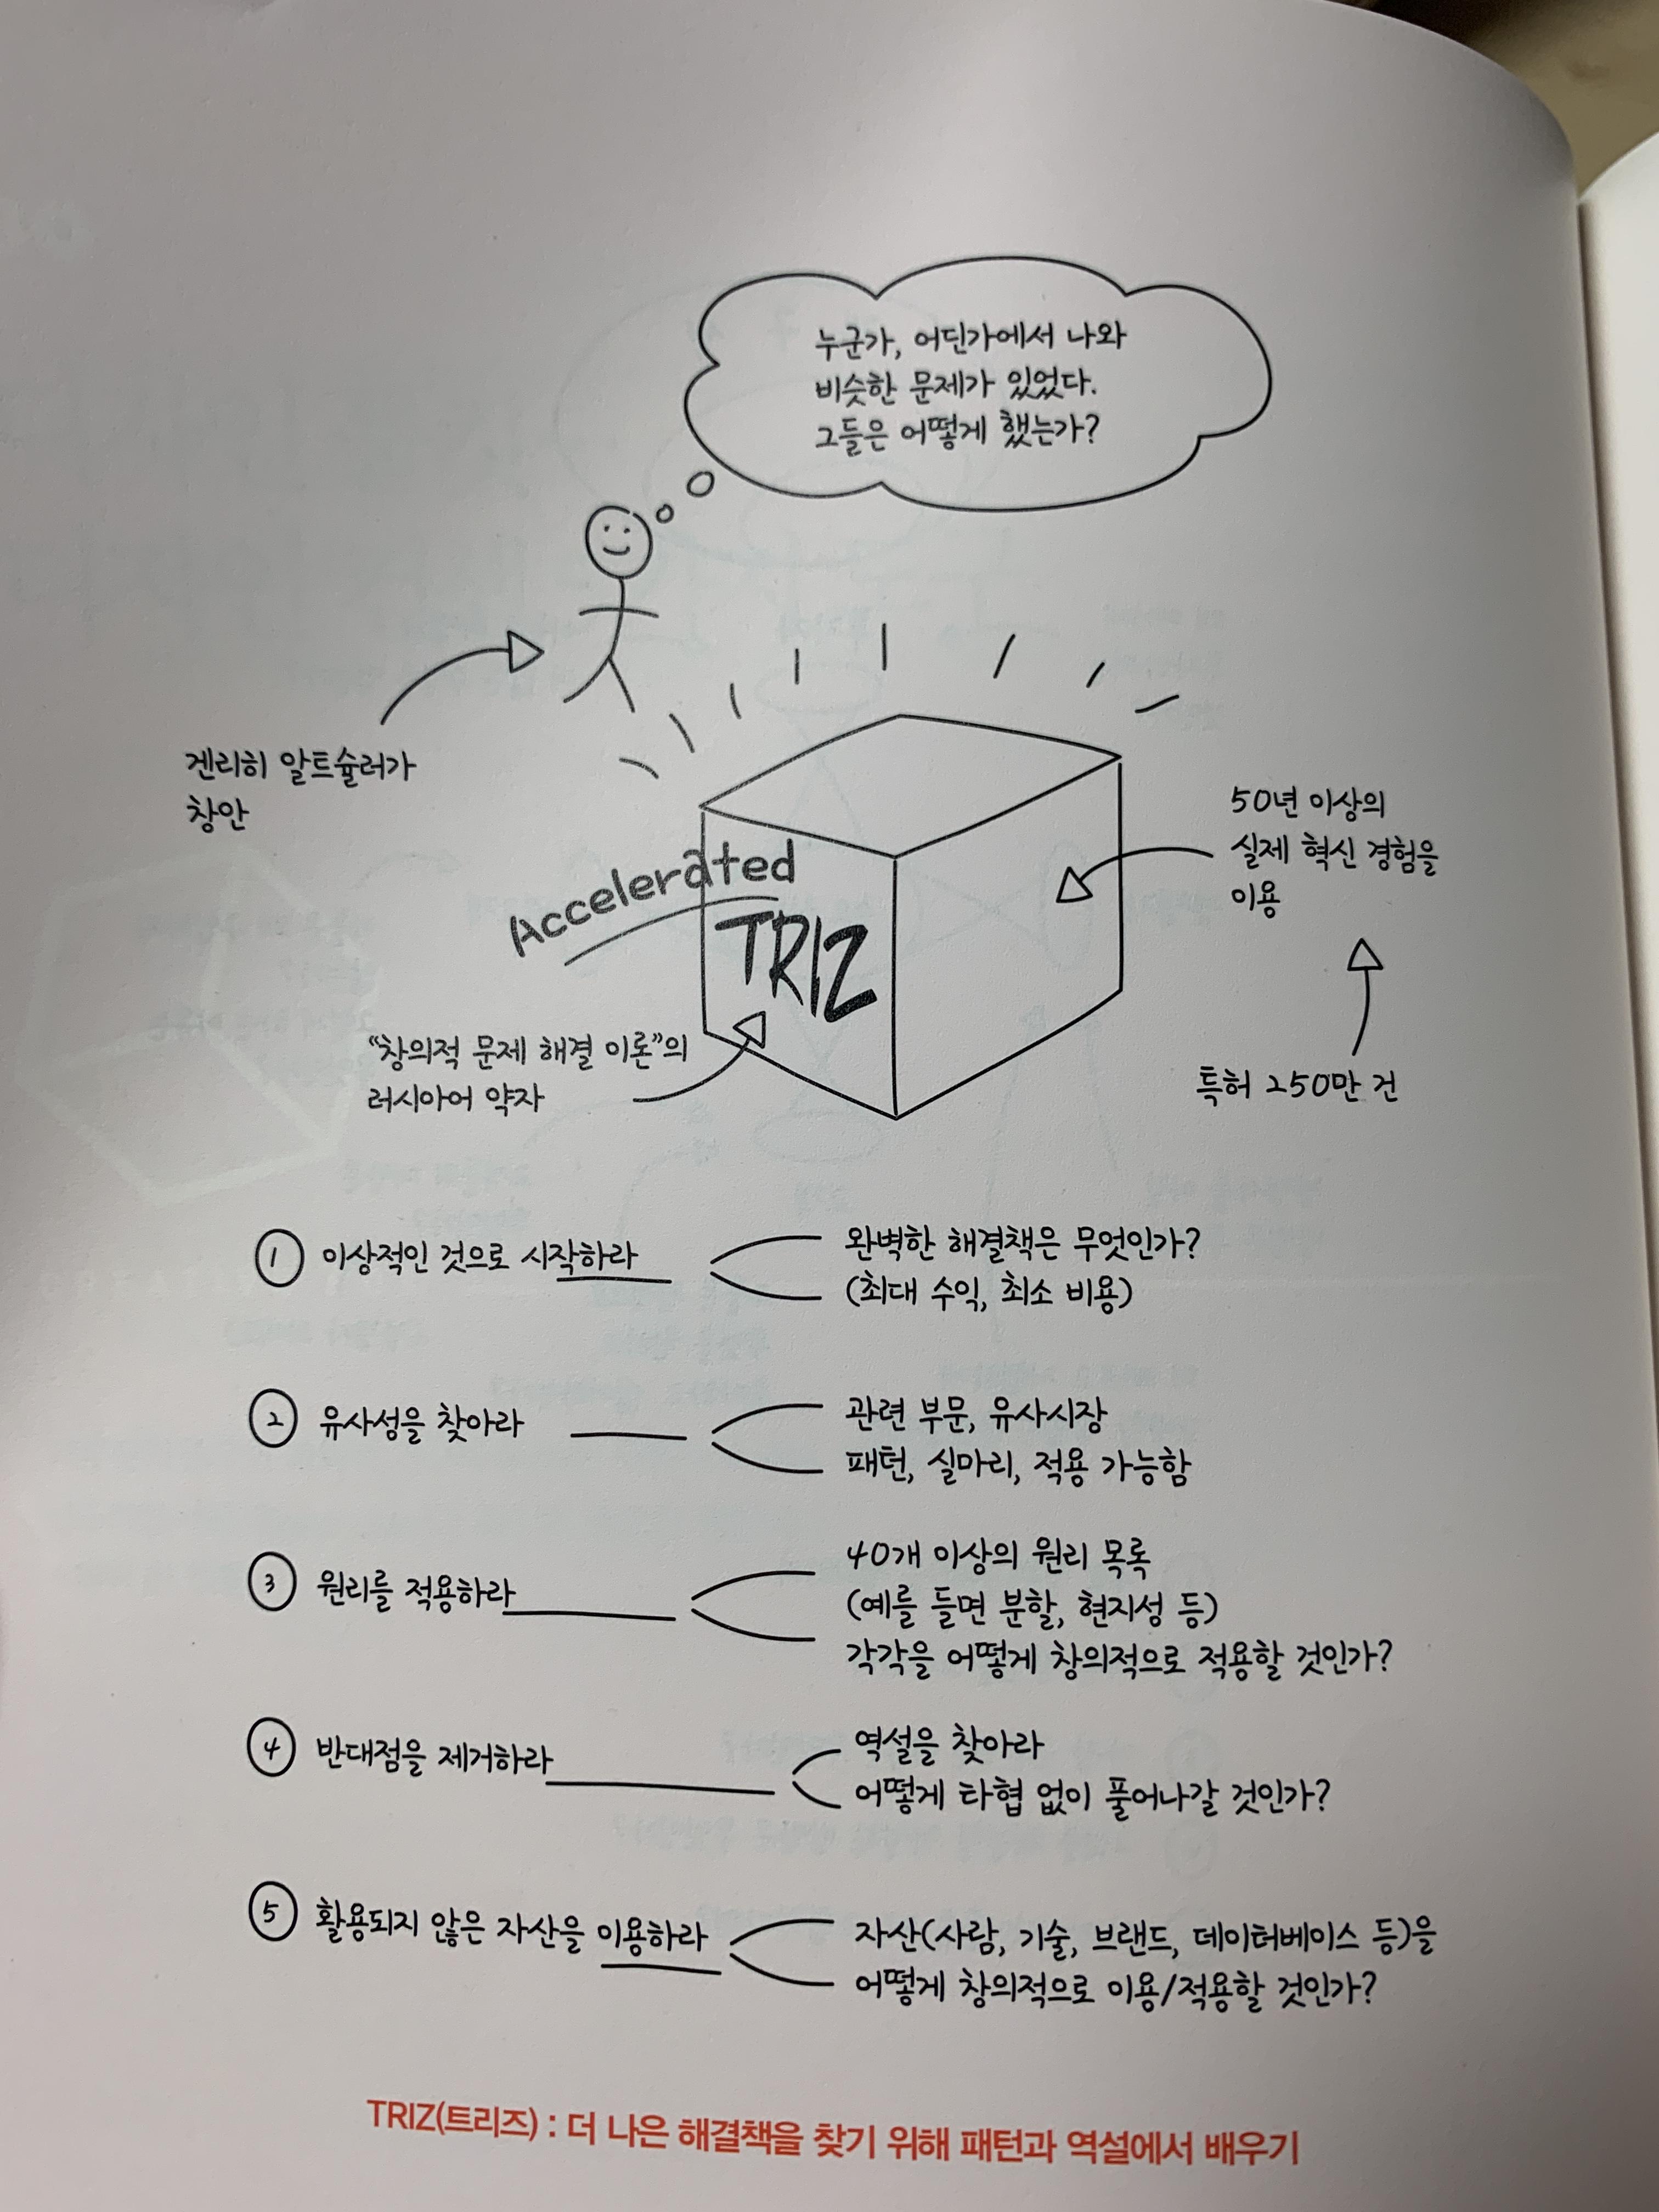 누군가, 어딘가에서 나와
비슷한 문제가 있었다.
그들은 어떻게 했는가?
겐리히 알트슐러가
창안
50년 이상의
실제 혁신 경험을
이용
Accelerated
TRIZ
"창의적 문제 해결 이론"의
러시아어 약자
특허 250만 건
① 이상적인 것으로 시작하라
완벽한 해결책은 무엇인가?
(최대 수익, 최소 비용)
② 유사성을 찾아라
관련 부문, 유사시장
패턴, 실마리, 적용 가능함
③ 원리를 적용하라
40개 이상의 원리 목록
(예를 들면 분할, 현지성 등)
각각을 어떻게 창의적으로 적용할 것인가?
④ 반대점을 제거하라
역설을 찾아라
어떻게 타협 없이 풀어나갈 것인가?
⑤ 활용되지 않은 자산을 이용하라
자산(사람, 기술, 브랜드, 데이터베이스 등)을
어떻게 창의적으로 이용/적용할 것인가?
TRIZ(트리즈) : 더 나은 해결책을 찾기 위해 패턴과 역설에서 배우기